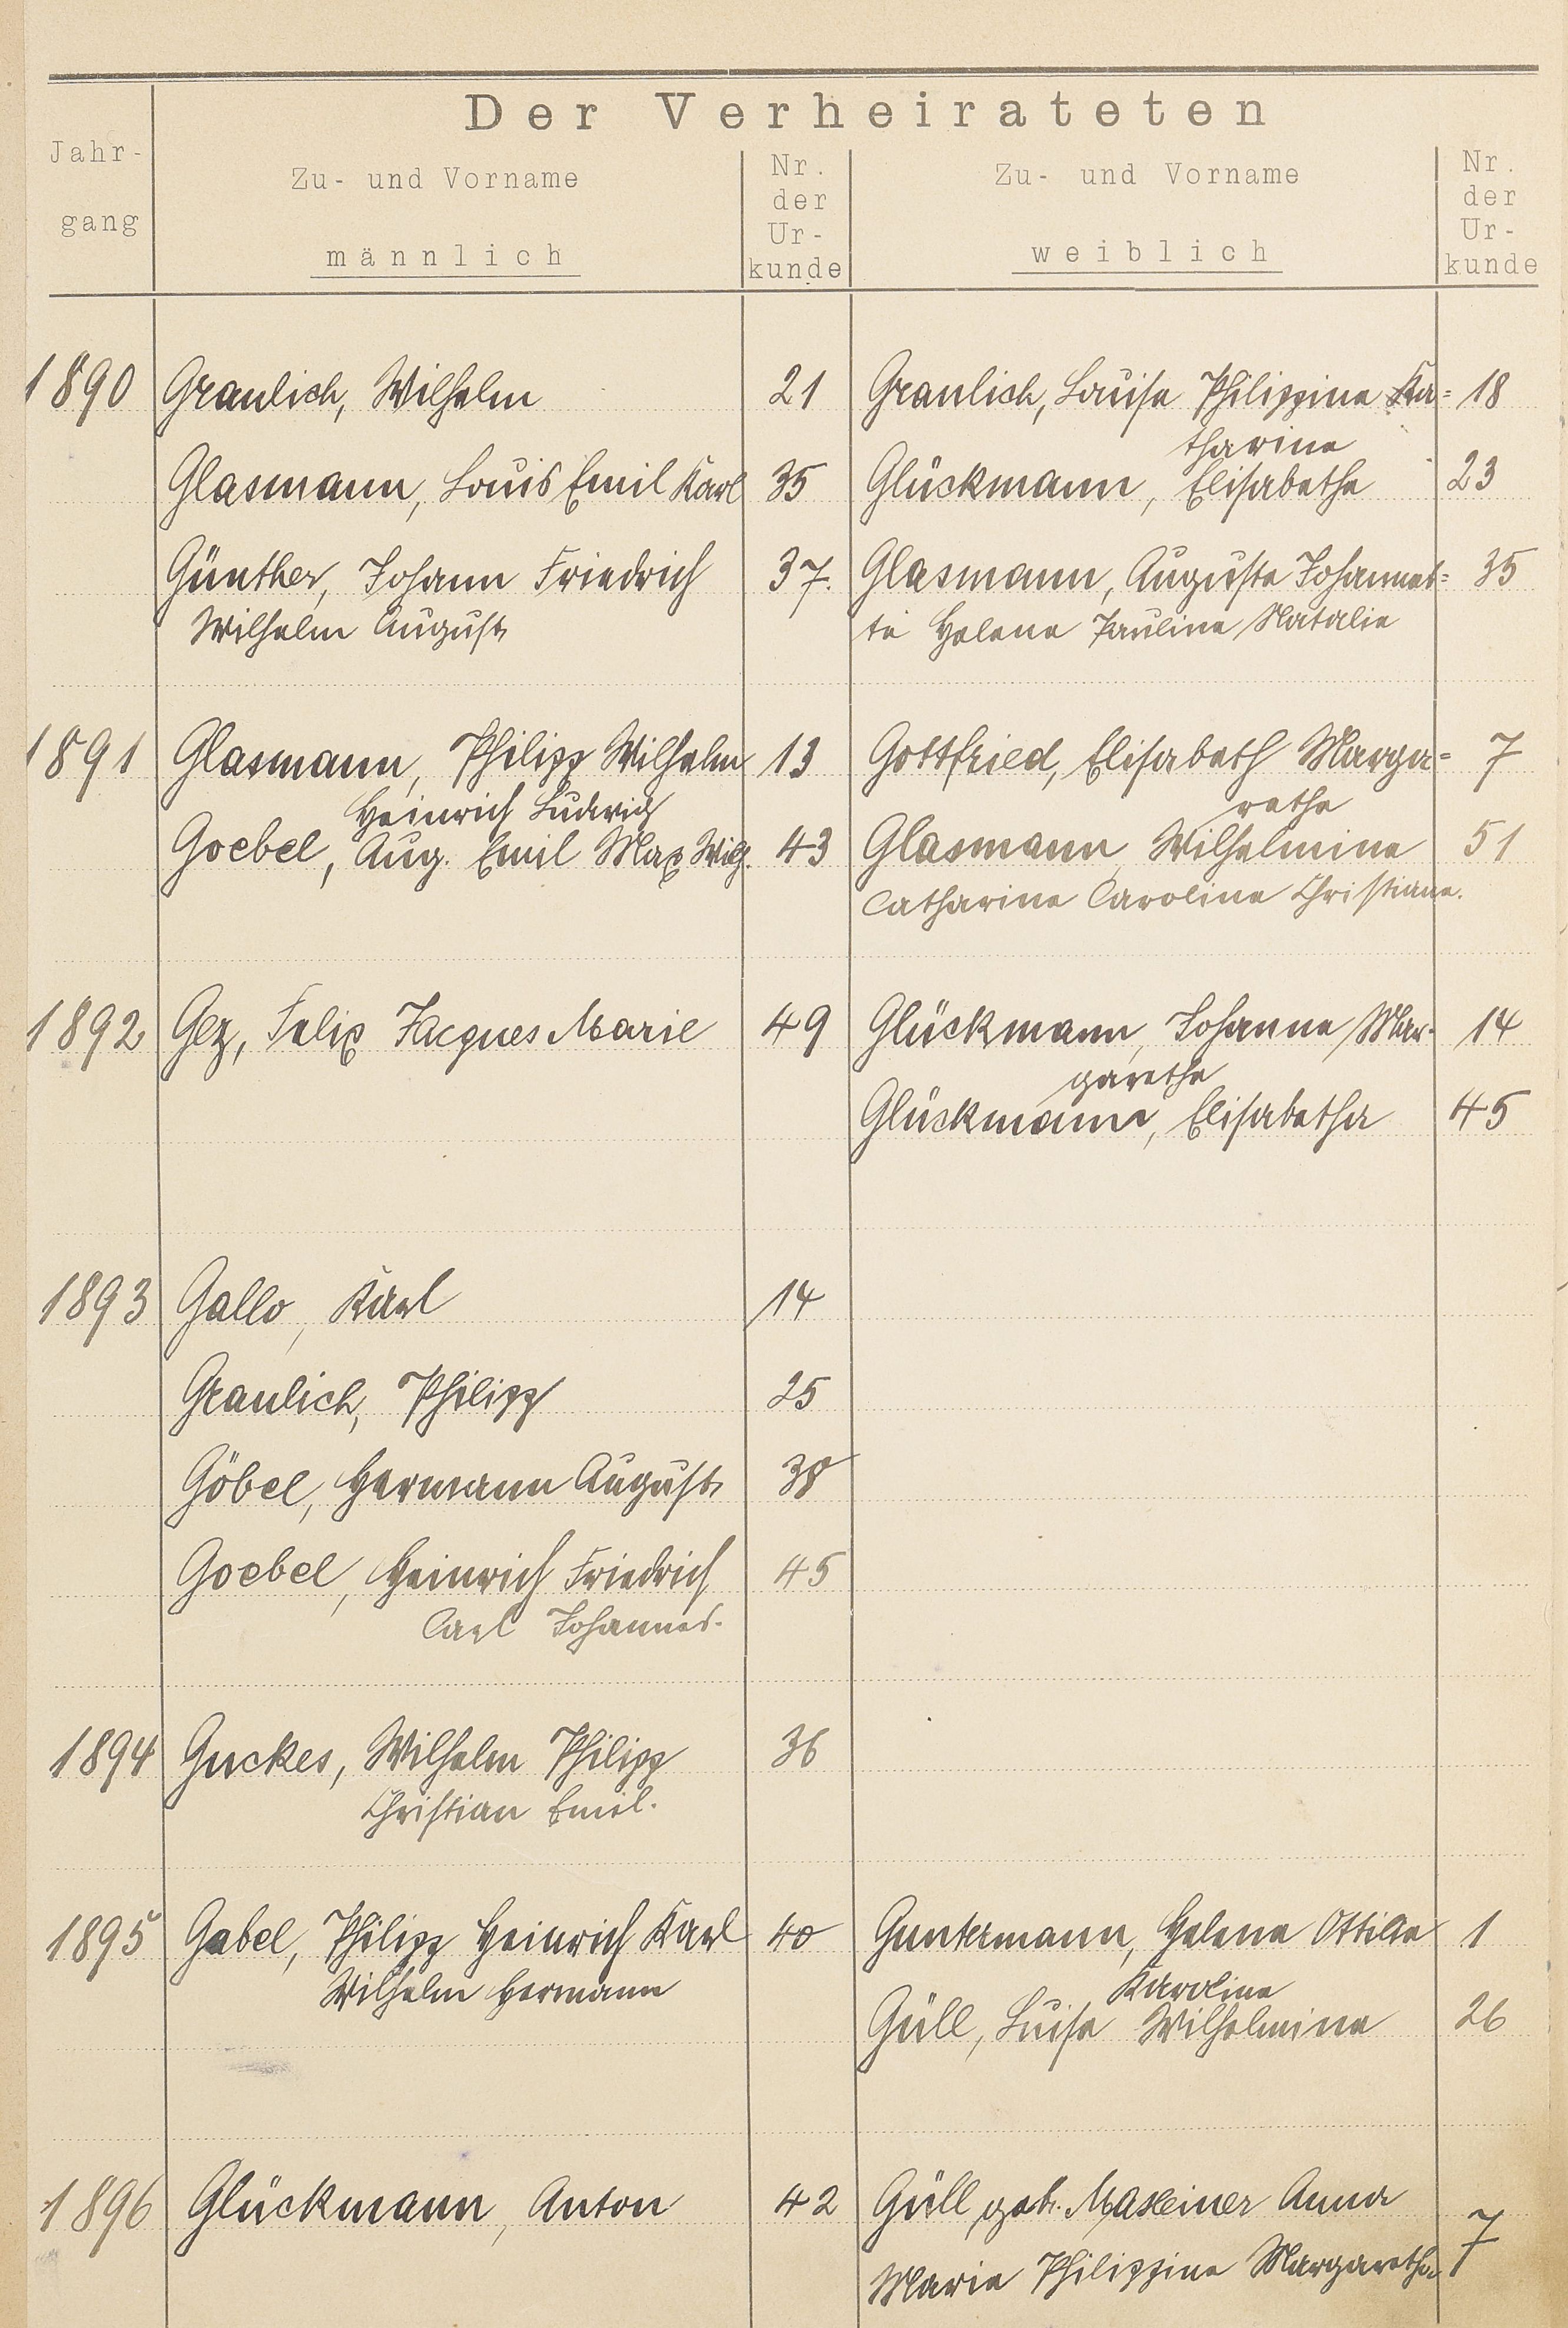 Der Verheirateten
Jahr-
gang
Zu- und Vorname
männlich
Nr.
der
Ur-
kunde
Zu- und Vorname
weiblich
Nr.
der
Ur-
kunde
1890 Graulich, Wilhelm 21 Graulich, Louise Philippine Ka= 18
tharine
Glasmann, Louis Emil Karl 35 Glückmann, Elisabethe 23
Günther, Johann Friedrich 37. Glasmann, Auguste Johannet= 35
Wilhelm August te Helene Pauline Natalie
1891 Glasmann, Philipp Wilhelm 13 Gottfried, Elisabeth Marga= 7
Heinrich Ludwig rethe
Goebel, Aug. Emil Max Wilh. 43 Glasmann Wilhelmine 51
Catharine Caroline Christiane.
1892 Gez, Felix Jacques Marie 49 Glückmann, Johanne Mar- 14
garethe
Glückmann, Elisabetha 45
1893 Gallo, Karl 14
Graulich, Philipp 25
Göbel, Hermann August 38
Goebel, Heinrich Friedrich 45
Carl Johannes.
1894 Guckes, Wilhelm Philipp 36
Christian Emil.
1895 Gabel, Philipp Heinrich Karl 40 Guntermann, Helene Ottilie 1
Wilhelm Hermann Karoline
Güll, Luise Wilhelmine 26
1896 Glückmann, Anton 42 Güll, geb. Maxeiner Anna
Marie Philippine Margaretha 7